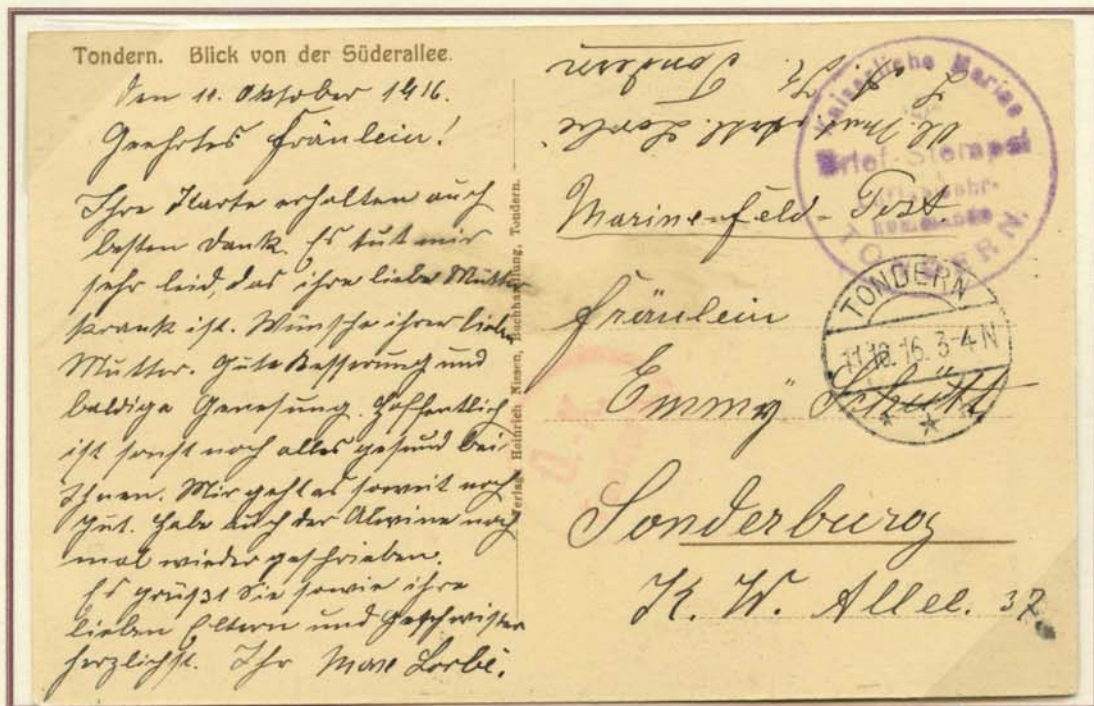 Tondern. Blick von der Süderallee.
Den 11. Oktober 1916.
Geehrtes Fräulein!
Ihre Karte erhalten auch
besten Dank. Es tut mir
sehr leid, das ihre liebe Mutter
krank ist. Wünsche ihrer lieben
Mutter. Gute Besserung und
baldige Genesung. Hoffentlich
ist sonst noch alles gesund bei
Ihnen. Mir geht es soweit noch
gut. Habe auch der Alwine noch
mal wieder geschrieben.
Es grüßt Sie sowie ihre
lieben Eltern und Geschwister
herzlichst. Ihr Max Lorbe.
Verlag: Heinrich Nissen, Buchhandlung, Tondern.
Lorbe
Tondern
Marine-Feld-Post.
Fräulein
Emmy Schütt
Sonderburg
K. W. Allee. 37.
Kaiserliche Marine
Brief-Stempel
kommando
TONDERN.
TONDERN
11.10.16. 3-4 N